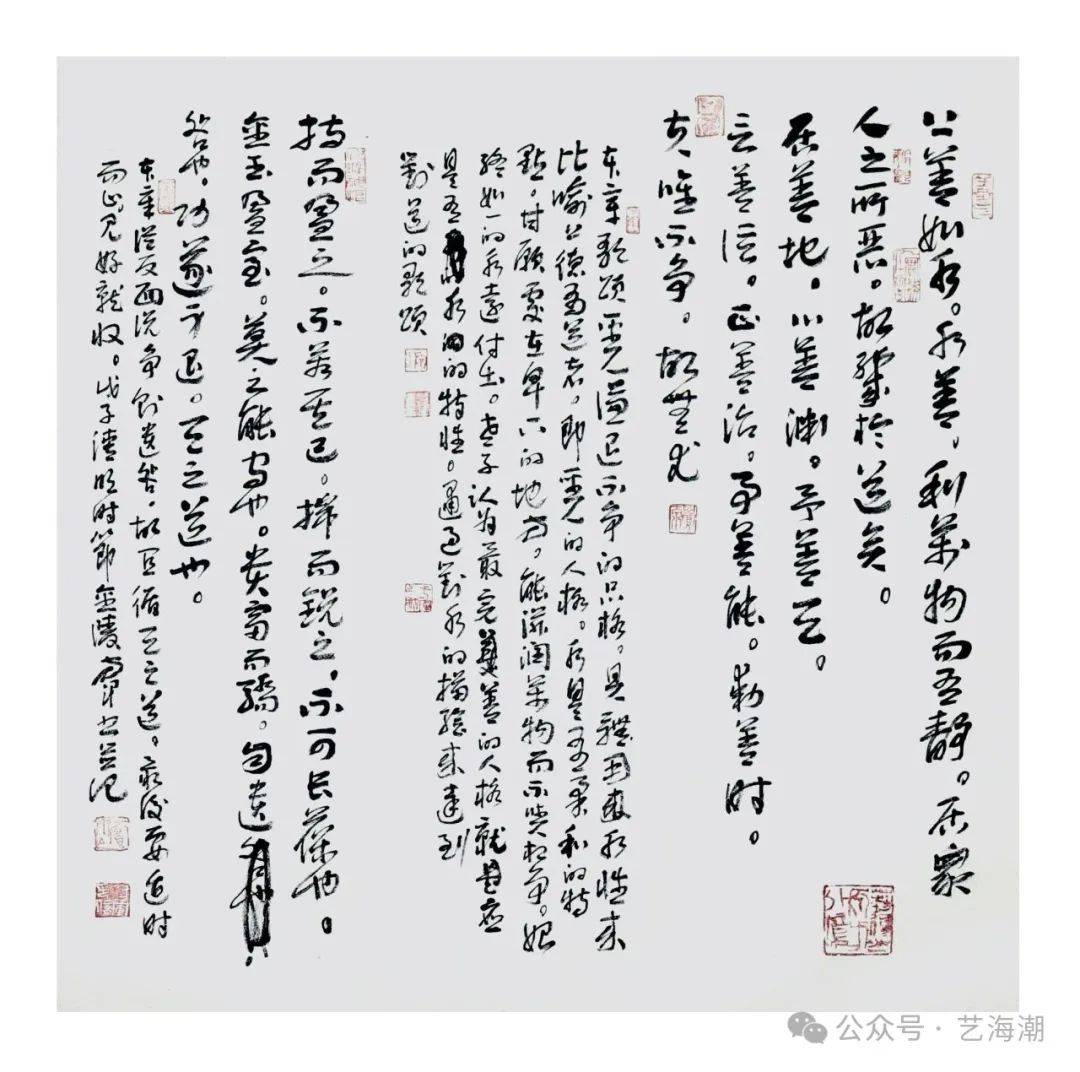 上善如水。水善，利萬物而有靜。居眾
人之所惡。故幾於道矣。
居善地，心善淵。予善天。
言善信。正善治。事善能。動善時。
夫唯不爭。故無尤
本章歌頌聖人謙退不爭的品格。具體用水性來
比喻上德有道者。即聖人的人格。水具有柔和的特
點。甘願處在卑下的地方。能滋潤萬物而不與相爭。始
終如一的永遠付出。老子認為最完善的人格就是應
具有水的特性。通過對水的描繪來達到
對道的歌頌
持而盈之。不若其已。揣而銳之，不可長葆也。
金玉盈室。莫之能守也。貴富而驕。自遺
咎也。功遂身退。天之道也。
本章從反面說爭則遺咎，故宜循天之道。最後要適時
而止見好就收。戊子清明時節金陵 書並記
公众号·艺海潮